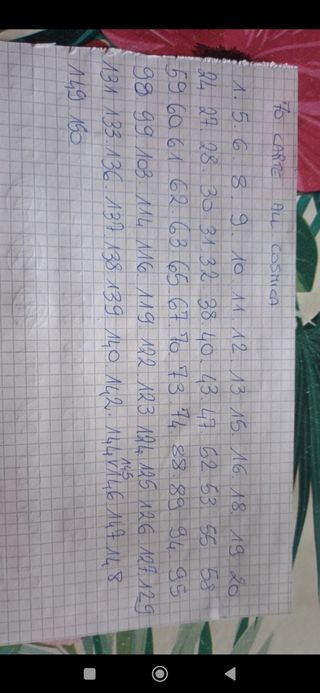 70 CARTE ALL COSMICA
1. 5. 6. 8. 9. 10 11 12 13 15. 16. 18. 19 20
24 27 28. 30 31 32 38 40 43 47 52 53 56 58
59 60 61 62 63 65 67 70 73 74 88. 89 94 95
98 99 103 114 116 119 122 123 124 125 126 127 129
131 133. 136. 137 138 139 140 142. 144 145 146 147 148
149 150